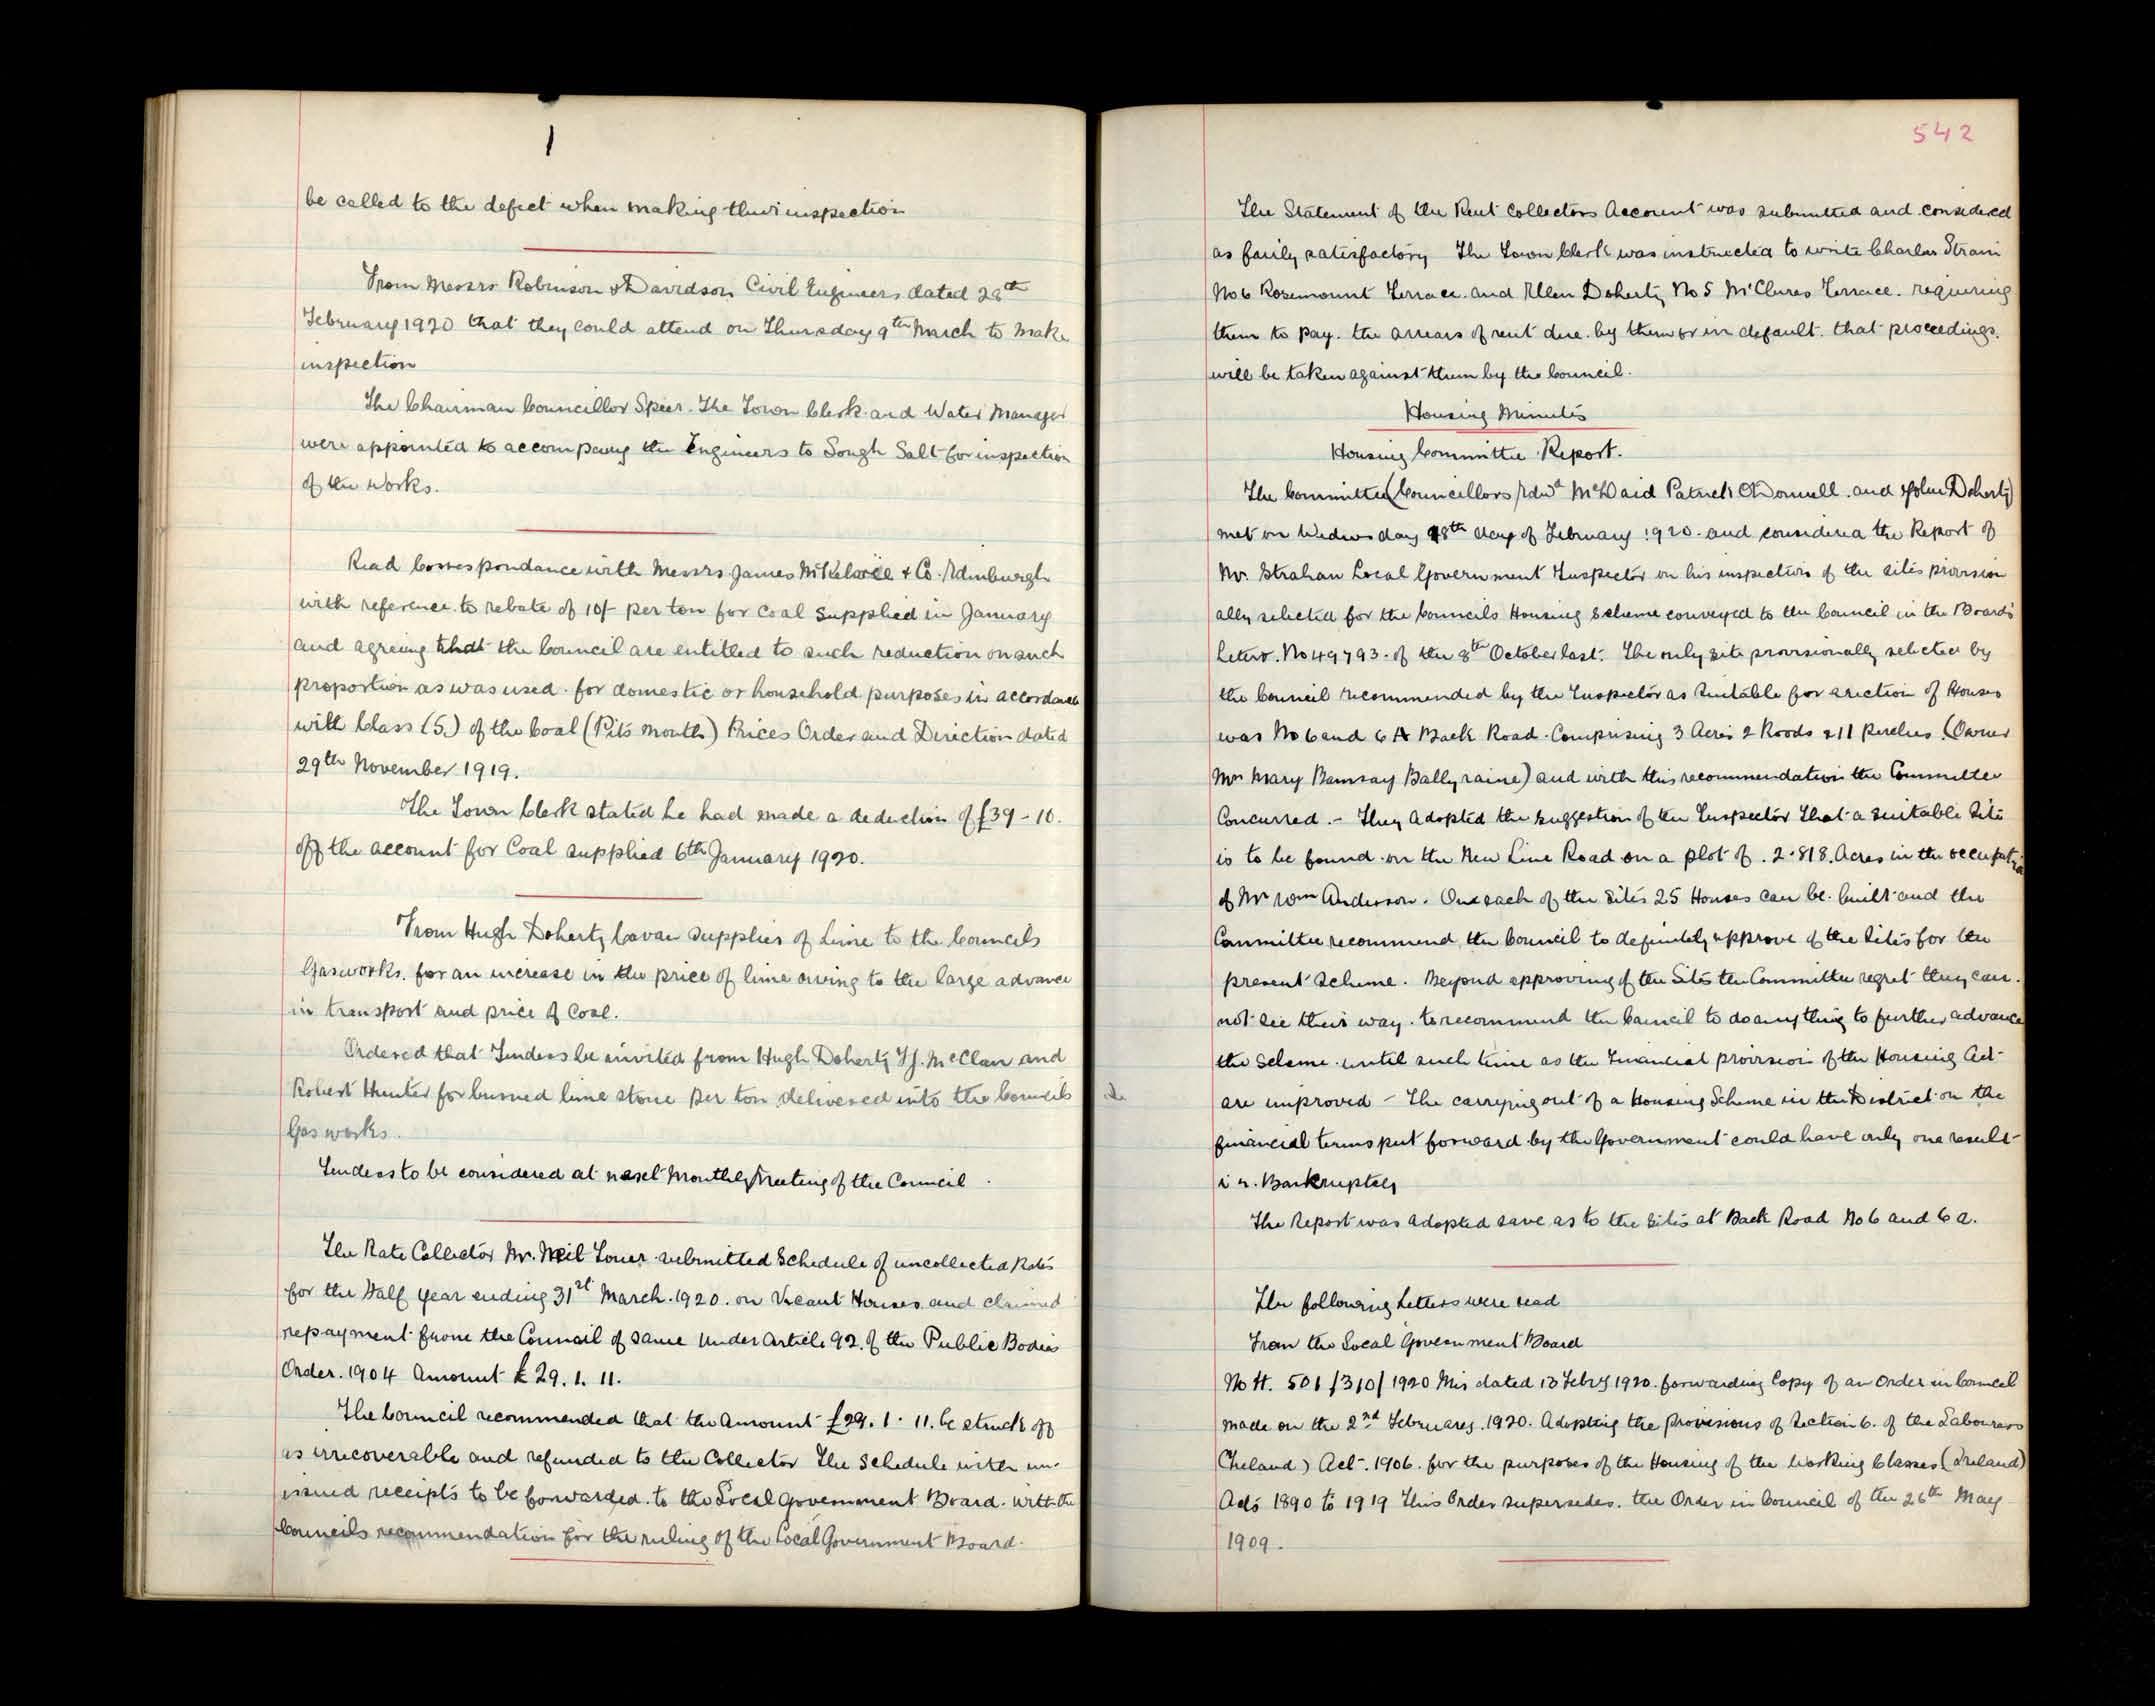 be called to the defect when making their inspection
From Messrs Robinson & Davidson Civil Engineers dated 28th
February 1920 that they could attend on Thursday 9th March to make
inspection
The Chairman Councillor Speer. The Town Clerk and Water Manager
were appointed to accompany the Engineers to Lough Salt for inspection
of the works.
Read Correspondance with Messrs James McKelvie & Co. Edinburgh
with reference to rebate of 10/- per ton for Coal supplied in January
and agreeing that the Council are entitled to such reduction on such
proportion as was used for domestic or household purposes in accordance
with Class (5.) of the Coal (Pits Mouth) Prices Order and Direction dated
29th November 1919.
The Town Clerk stated he had made a deduction of £39-10.
off the account for Coal supplied 6th January 1920.
From Hugh Doherty Cavan supplier of Lime to the Councils
Gasworks. for an increase in the price of lime owing to the large advance
in transport and price of Coal.
Ordered that Tenders be invited from Hugh Doherty T.J. McClan and
Robert Hunter for burned lime stone per ton delivered into the Councils
Gas works.
Tenders to be considered at next Monthly Meeting of the Council.
The Rate Collector Mr. Neil Toner submitted Schedule of uncollected Rates
for the Half year ending 31st March. 1920. on Vacant Houses and claimed
repayment from the Council of same under Article 92. of the Public Bodies
Order. 1904 Amount £29. 1. 11.
The Council recommended that the amount £29. 1. 11. be struck off
as irrecoverable and refunded to the Collector The Schedule with un-
issued receipts to be forwarded to the Local Government Board. with the
Councils recommendation for the ruling of the Local Government Board.
542
The Statement of the Rent Collectors Account was submitted and considered
as fairly satisfactory The Town Clerk was instructed to write Charles Strain
No 6 Rosemount Terrace. and Ellen Doherty No 5 McClures Terrace. requiring
them to pay. the arrears of rent due. by them or in default. that proceedings.
will be taken against them by the Council.
Housing Minutes
Housing Committee Report.
The Committee (Councillors Edwd McDaid Patrick O'Donnell. and John Doherty)
met on Wednesday 18th day of February 1920. and considered the Report of
Mr. Strahan Local Government Inspector on his inspection of the sites provision
ally selected for the Councils Housing Scheme conveyed to the Council in the Board's
Letter. No 49793. of the 8th October last. The only site provisionally selected by
the Council recommended by the Inspector as Suitable for erection of Houses
was No 6 and 6A Back Road. Comprising 3 Acres 2 Roods & 11 perches. (Owner
Mrs Mary Ramsay Ballyraine) and with this recommendation the Committee
Concurred. - They adopted the suggestion of the Inspector That a suitable Site
is to be found on the New Line Road on a plot of. 2.818. Acres in the occupation
of Mr Wm Anderson. On each of the Sites 25 Houses can be. built and the
Committee recommend, the Council to definitely approve of the Sites for the
present Scheme. Beyond approving of the Sites the Committee regret they can.
not see their way. to recommend the Council to do anything to further advance
the Scheme. until such time as the Financial provision of the Housing Act
are improved - The carrying out of a Housing Scheme in the District on the
financial terms put forward by the Government could have only one result
i.e. Bankruptcy
The Report was adopted save as to the Sites at Back Road No 6 and 6a.
The following Letters were read
From the Local Government Board
No H. 501/310/1920 Mis dated 13 Febry 1920. forwarding Copy of an Order in Council
made on the 2nd February. 1920. Adopting the provisions of Section 6. of the Labourers
(Ireland) Act. 1906. for the purposes of the Housing of the Working Classes (Ireland)
Acts 1890 to 1919 This Order supersedes. the Order in Council of the 26th May
1909.